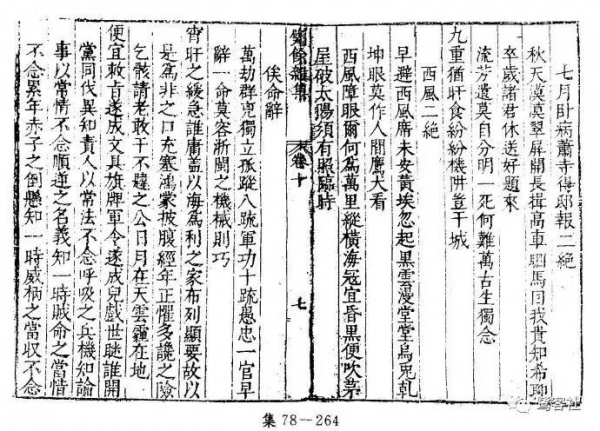 七月卧病蕭寺得邸報二絶
秋天漠漠翠屏開長揖高車駟馬回我貴知希聊
卒歲諸君休送好題來
流芳遺臭自分明一死何難萬古生獨念
九重猶旰食紛紛機阱登干城
西風二絶
早避西風席未安黄埃忽起黒雲漫堂堂烏兎乾
坤眼莫作人間鷹犬看
西風障眼爾何爲萬里縱橫海寇宜昏黒便吹茅
屋破太陽須有照臨時
甓餘雜集 卷十 七
俟命辭
萬劫群兇獨立孤蹤八疏軍功十疏愚忠一官早
辭一命莫容浙閩之機械則巧
宵旰之緩急誰庸蓋以海爲利之家布列顯要故以
是爲非之口充塞鴻蒙披腹經年正懼多讒之險
乞骸請老敢干不韙之公日月在天雲霾在地
便宜敕書遂成文具旗牌軍令遂成兒戲世誰開
黨同伐異知責人以常法不念呼吸之兵機知論
事以常情不念順逆之名義知一時賊命之當惜
不念累年赤子之倒懸知一時威柄之當收不念
集 78－264
鹭客社